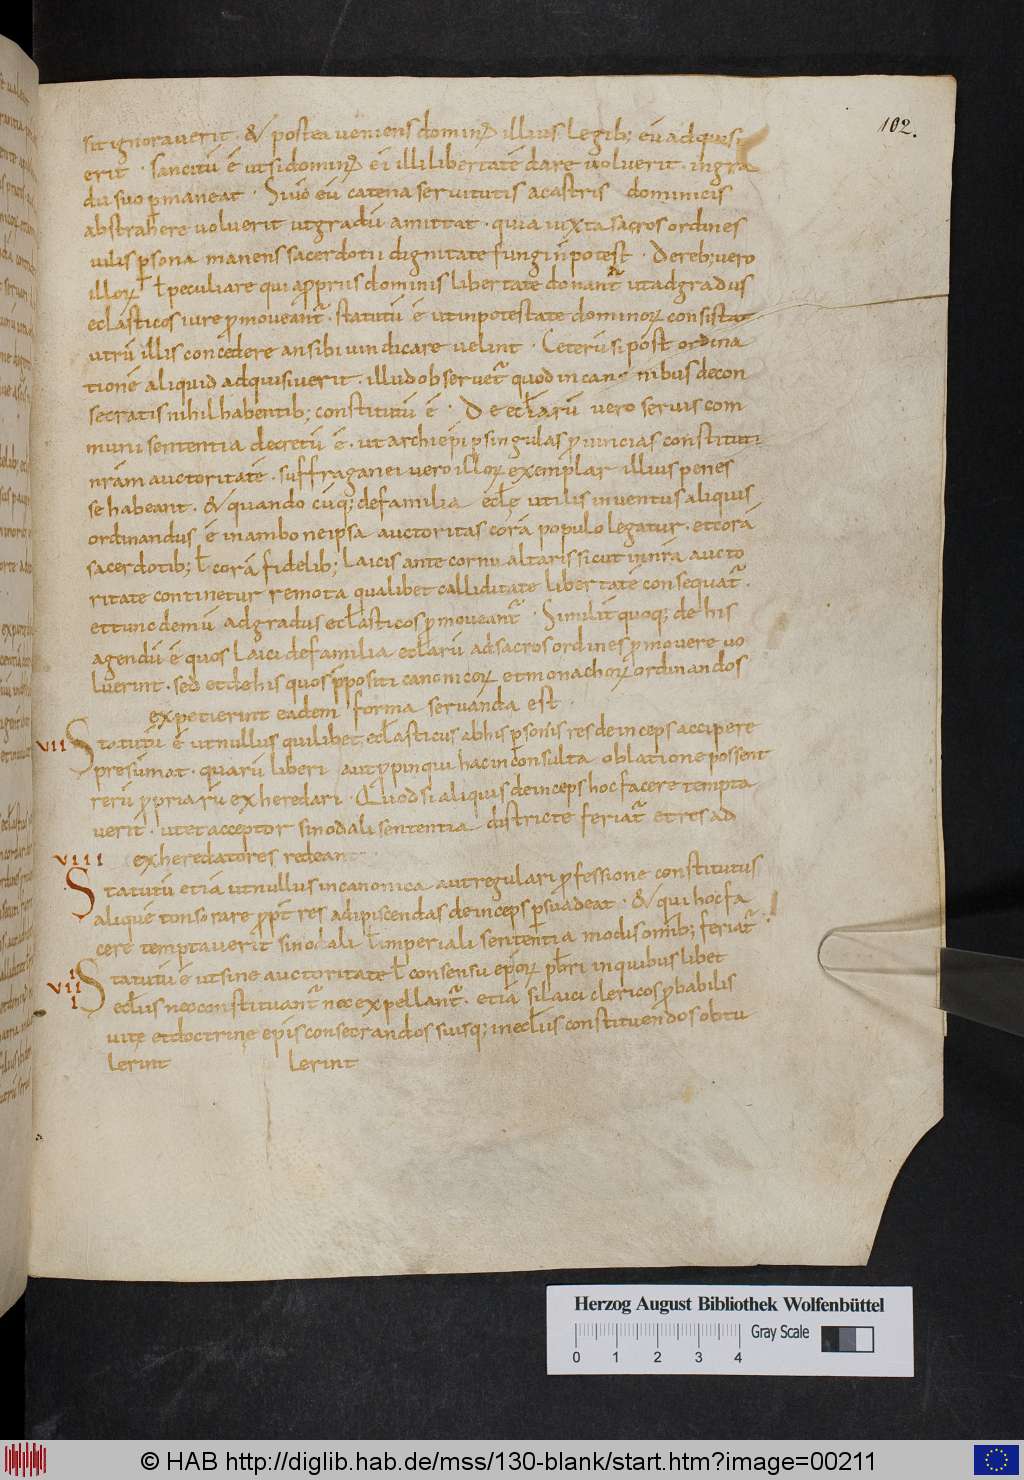 102.
sit ignoraverit · & postea veniens domin᷒ illius legib; eū adquisi
erit · sancitū ē ut si domin᷒ ei illi libertatē dare voluerit · in gra
du suo p̄maneat · Si vō eū catena servitutis a castris dominicis
abstrahere voluerit ut gradū amittat · quia iuxta sacros ordines
vilis p̄sona manens sacerdotii dignitate fungi n̄ potest · De reb; vero
illoꝝ ł peculiare qui a propriis dominis libertate donant᷑ ut ad gradus
eccłasticos iure p̄moveant᷑ · statutū ē ut in potestate dominoꝝ consistat
utrū illis concedere an sibi vindicare velint · Ceterū si post ordina
tionē aliquid adquisiverit · illud observet᷑ quod in canonibus de con
secratis nihil habentib; constitutū ē · De eccłarū vero servis com
muni sententia decretū ē · ut archiepi p singulas p̄vincias constituti
nr̄am auctoritatē · suffraganei vero illoꝝ exemplar illius penes
se habeant · & quandocūq; de familia eccłę utilis inventus aliquis
ordinandus ē in ambone ipsa auctoritas corā populo legatur · et corā
sacerdotib; ł corā fidelib; laicis ante cornu altaris sicut in nr̄a aucto
ritate continetur remota qualibet calliditate libertatē consequat᷑ ·
et tunc demū ad gradus eccłasticos p̄moveant᷑ · Similit᷑ quoq; de his
agendū ē quos laici de familia eccłarū ad sacros ordines p̄movere vo
luerint · sed et de his quos p̄positi canonicoꝝ et monachoꝝ ordinandos
expetierint eadem forma servanda est ·
VII Statutū ē ut nullus quilibet eccłasticus ab his p̄sonis res deinceps accipere
presumat · quarū liberi aut p̄pinqui hac inconsulta oblatione possent
rerū p̄priarū exheredari · Quod si aliquis deinceps hoc facere tempta
verit · ut et acceptor sinodali sententia districte feriat᷑ et res ad
exheredatores redeant
VIII Statutū etiā ut nullus in canonica aut regulari p̄fessione constitutus
aliquē tonsorare p̄pt̄ res adipiscendas deinceps p̄suadeat · & qui hoc fa
cere temptaverit sinodali ł imperiali sententia modis omib; feriat᷑ ·
VIIII Statutū ē ut sine auctoritate ł consensu ep̄oꝝ p̄bri in quibuslibet
eccłiis nec constituant᷑ nec expellant᷑ · etiā si laici clericos p̄babilis
vitę et doctrinę epis consecrandos suisq; in eccłiis constituendos obtu
lerint lerint
Herzog August Bibliothek Wolfenbüttel
Gray Scale
0 1 2 3 4
© HAB http://diglib.hab.de/mss/130-blank/start.htm?image=00211